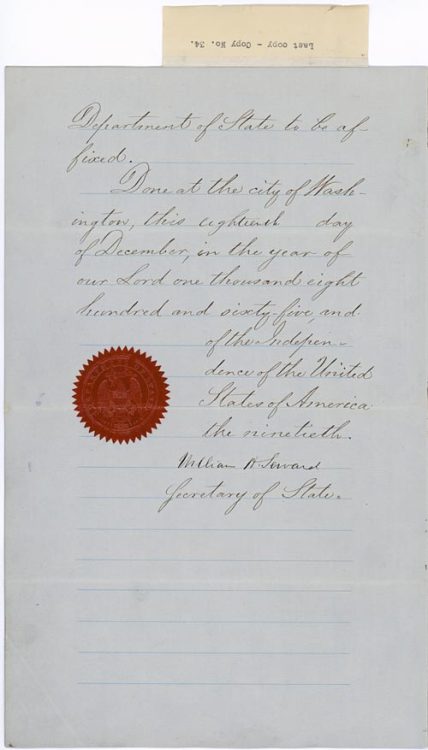 Last copy - Copy No. 34.
Department of State to be af-
fixed.
Done at the city of Wash-
ington, this eighteenth day
of December, in the year of
our Lord one thousand eight
hundred and sixty-five, and
of the Indepen-
dence of the United
States of America
the ninetieth.
William H Seward
Secretary of State.